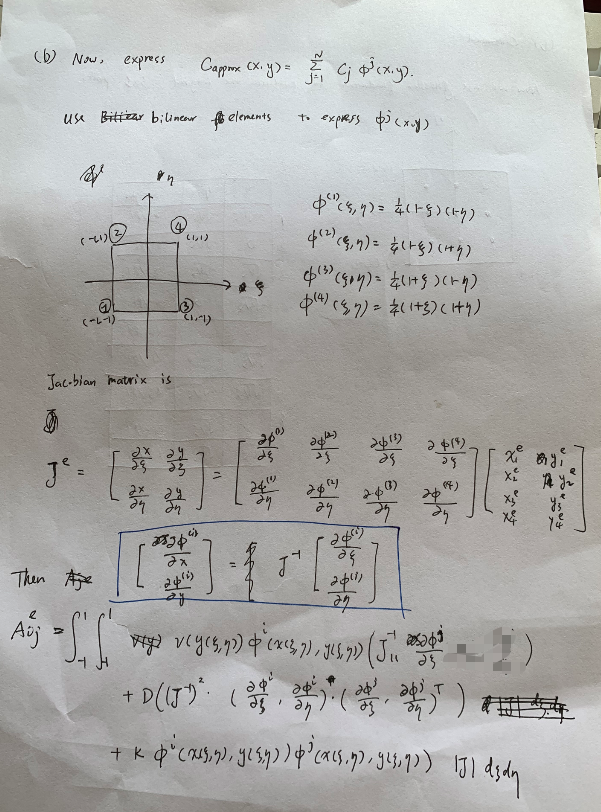 (b) Now, express Capprox (x,y) = Σ_{j=1}^{N} Cj ϕ^j (x,y).
Use bilinear elements to express ϕ^j (x,y)
η
② ④
(-1,1) (1,1)
ξ
① ③
(-1,-1) (1,-1)
ϕ^(1) (ξ,η) = 1/4 (1-ξ)(1-η)
ϕ^(2) (ξ,η) = 1/4 (1-ξ)(1+η)
ϕ^(3) (ξ,η) = 1/4 (1+ξ)(1-η)
ϕ^(4) (ξ,η) = 1/4 (1+ξ)(1+η)
Jacobian matrix is
J^e = [ ∂x/∂ξ ∂y/∂ξ ; ∂x/∂η ∂y/∂η ] = [ ∂ϕ^(1)/∂ξ ∂ϕ^(2)/∂ξ ∂ϕ^(3)/∂ξ ∂ϕ^(4)/∂ξ ; ∂ϕ^(1)/∂η ∂ϕ^(2)/∂η ∂ϕ^(3)/∂η ∂ϕ^(4)/∂η ] [ x1^e y1^e ; x2^e y2^e ; x3^e y3^e ; x4^e y4^e ]
[ ∂ϕ^(i)/∂x ; ∂ϕ^(i)/∂y ] = J^-1 [ ∂ϕ^(i)/∂ξ ; ∂ϕ^(i)/∂η ]
Then
Aij^e = ∫_{-1}^{1} ∫_{-1}^{1} v(y(ξ,η)) ϕ^i (x(ξ,η), y(ξ,η)) ( J11^-1 ∂ϕ^j/∂ξ )
+ D((J^-1)^2 · (∂ϕ^i/∂ξ, ∂ϕ^i/∂η) · (∂ϕ^j/∂ξ, ∂ϕ^j/∂η)^T )
+ K ϕ^i (x(ξ,η), y(ξ,η)) ϕ^j (x(ξ,η), y(ξ,η)) ) |J| dξdη